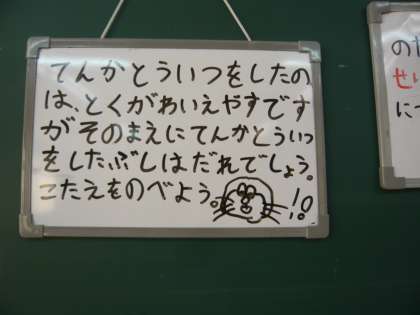 てんかとういつをしたの
は、とくがわいえやすです
がそのまえにてんかとういつ
をしたぶしはだれでしょう。
こたえをのべよう。!?
のた
せい
に